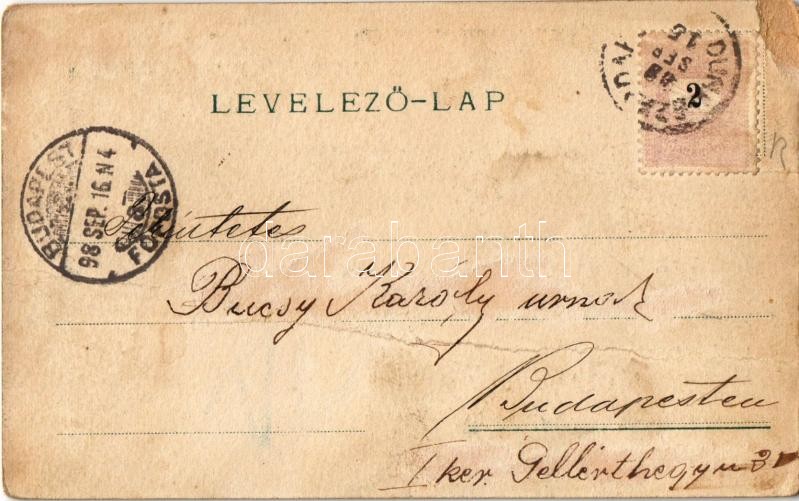 LEVELEZŐ-LAP
2
98 SEP
15
BUDAPEST
98 SEP. 16 N 4
FŐPOSTA
Tekintetes
Bucsy Károly urnak
Budapesten
I ker. Gellérthegy u 31
darabanth